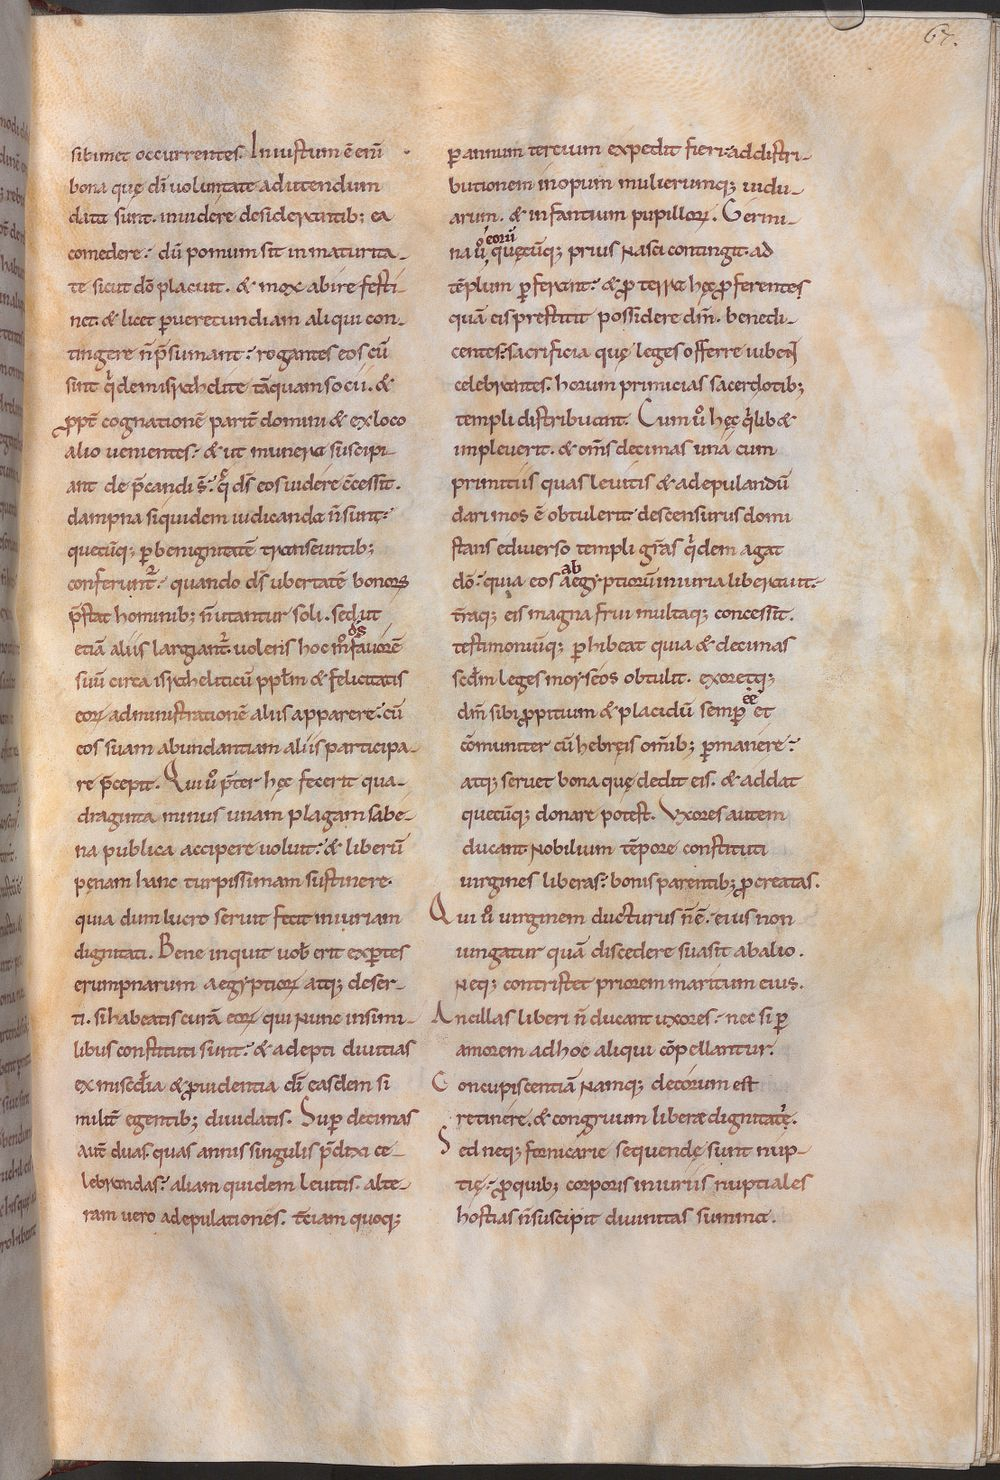 67.
sibimet occurrentes. Iniustum ē enī
bona quę dī uoluntate ad utendum
data sunt. inuidere desiderantib; ea
comedere: dū pomum sit in maturita-
te sicut dō placuit. & mox abire festi-
net. & licet p uerecundiam aliqui con-
tingere n̄ p̄sumant: rogantes eos cū
sint q̇dem israhelite tāquam socii. &
ꝓpt̄ cognationē parit̄ domini & ex loco
alio uenientes: & ut munera suscipi-
ant de p̄candi s̄. q̇ ds̄ eos uidere c̄cessit.
dampna siquidem iudicanda n̄ sunt:
quecūq; p benignitatē transeuntib;
conferunt̄: quando ds̄ ubertatē bonoꝝ
p̄stat hominib; n̄ utantur soli. sed ut
etiā aliis largiant̄. uolens hoc m̊ ds̄ fauorē
suū circa israheliticū ppl̄m & felicitatis
eoꝝ administrationē aliis apparere: cū
eos suam abundantiam aliis participa-
re p̄cepit. Qui ů p̄ter hęc fecerit qua-
draginta minus unam plagam sabe-
na publica accipere uoluit: & liberū
penam hanc turpissimam sustinere.
quia dum lucro seruit fecit iniuriam
dignitati. Bene inquit uob̄ erit exptes
erumpnarum aegyptioꝝ atq; deser-
ti. si habeatis curā eoꝝ qui nunc insimi-
libus constituti sunt: & adepti diuitias
ex misc̄dia & ꝓuidentia dī easdem si
milit̄ egentib; diuidatis. Sup decimas
aut̄ duas. quas annis singulis p̄dixi ce-
lebrandas: aliam quidem leuitis. alte-
ram uero ad epulationes. t̄ciam quoq;
p annum tercium expedit fieri: ad distri-
butionem inopum mulierumq; uidu-
arum. & infantium pupilloꝝ. Germi-
na ů eorū quęcūq; prius nasci contingit. ad
tēplum p ferant: & ꝓ terra hęc ꝓferentes
quā eis prestitit possidere dm̄. benedi-
centes: sacrificia quę leges offerre iubent
celebrantes. horum primicias sacerdotib;
templi distribuant. Cum ů hęc q̇lib&
impleuerit. & om̄s decimas unā cum
primitiis quas leuitis & ad epulandū
dari mos ē obtulerit descensurus domi
stans e diuerso templi gr̄as q̇dem agat
dō: quia eos ab aegyptiorū iniuria liberauit:
t̄raq; eis magna frui multaq; concessit.
testimoniūq; phibeat quia & decimas
scd̄m leges moyseos obtulit. exoretq;
dm̄ sibi ꝓpitium & placidū semp eē et
cōmuniter cū hebręis om̄ib; pmanere:
atq; seruet bona quę dedit eis. & addat
quecūq; donare potest. Uxores autem
ducant nobilium tēpore constituti
uirgines liberas: bonis parentib; ꝓcreatas.
Qui ů uirginem ducturus n̄ ē. eius non
iungatur quā discedere suasit ab alio.
Neq; contristet priorem maritum eius.
Ancillas liberi n̄ ducant uxores: nec si p
amorem ad hoc aliqui cōpellantur.
Concupiscentiā namq; decorum est
retinere. & congruum liberę dignitati.
Sed neq; fornicarie sequendę sunt nup-
tię: ꝓ quib; corporis iniuriis nuptiales
hostias n̄ suscipit diuinitas summa.